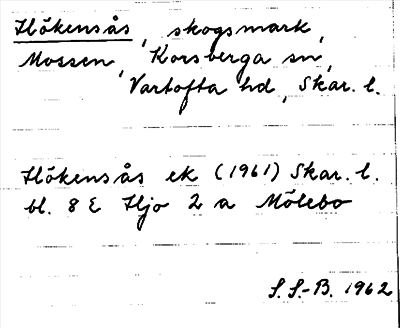 Hökensås, skogsmark,
Mossen, Korsberga sn,
Vartofta hd, Skar. l.
Hökensås ek (1961) Skar. l.
bl. 8 E Hjo 2 a Mölebo
S. S.-B. 1962